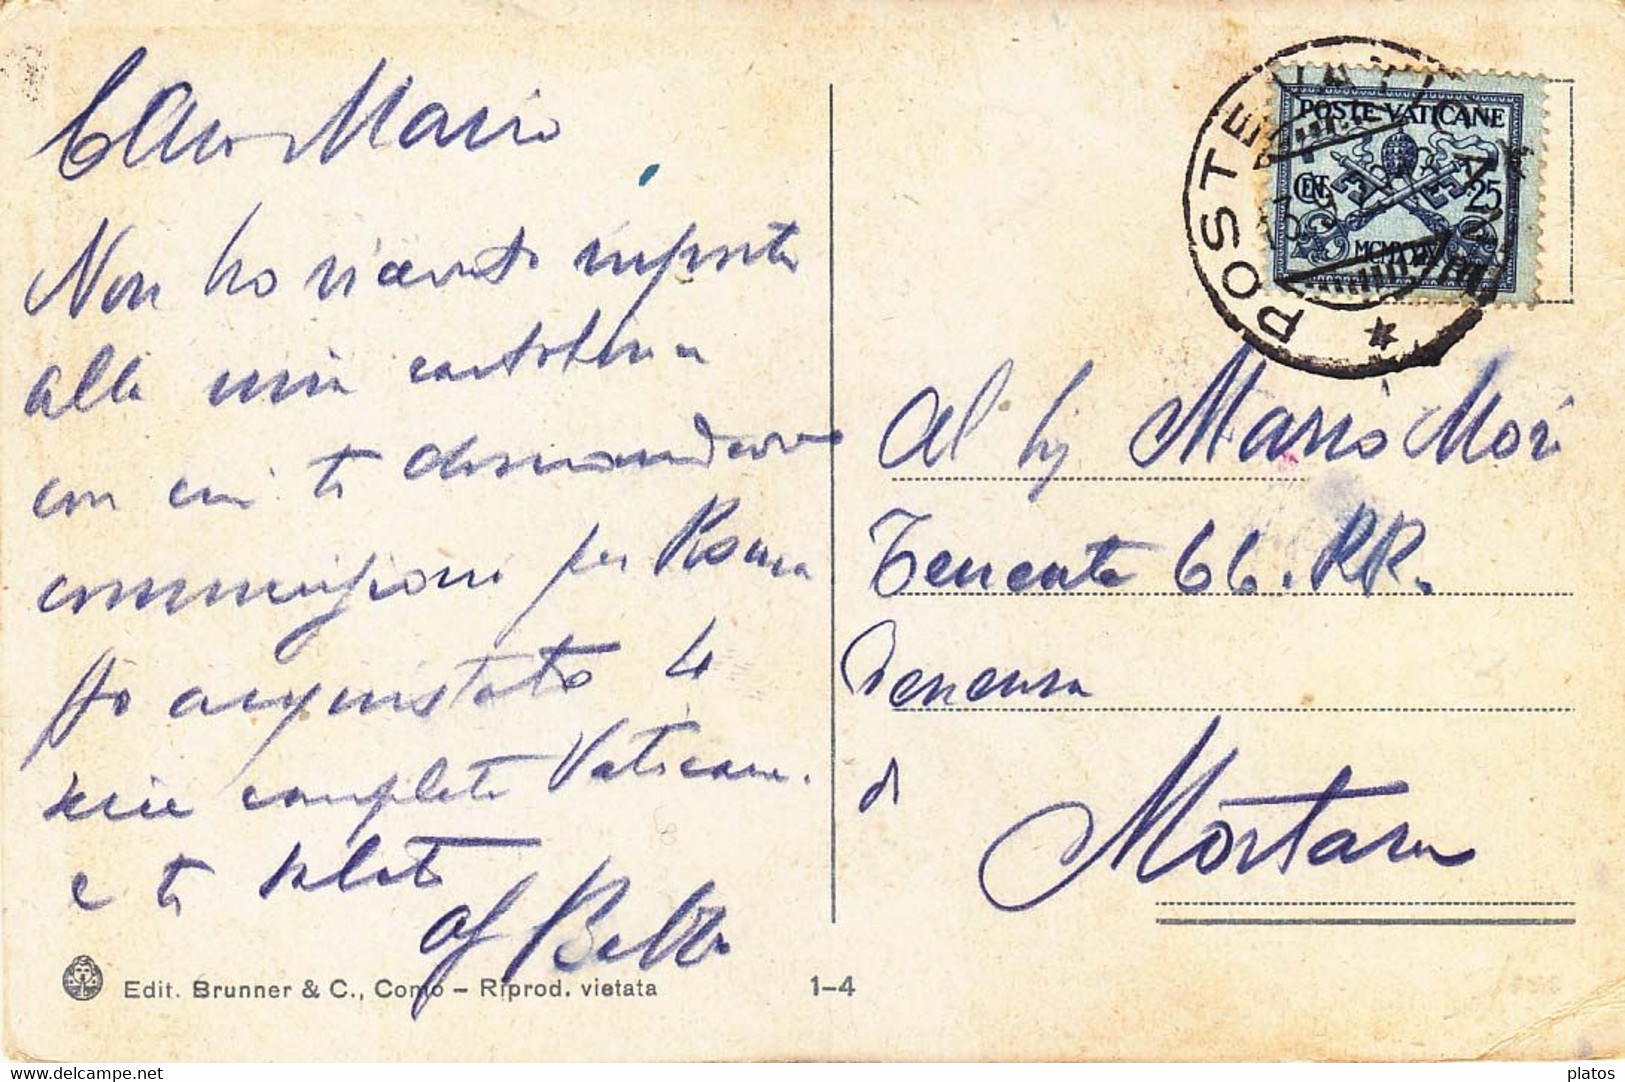 Caro Mario
Non ho ricevuto risposta
alla mia cartolina
con cui ti domandavo
commissioni per Roma
Ho acquistato 4
serie complete Vaticane.
e ti saluto
Edit. Brunner & C., Como – Riprod. vietata
1–4
POSTE VATICANE
CENT.
25
MCMXXIX
POSTE
Al Sig Mario Mori
Tenente CC. RR.
Tenenza
di
Mortara
delcampe.net
platos